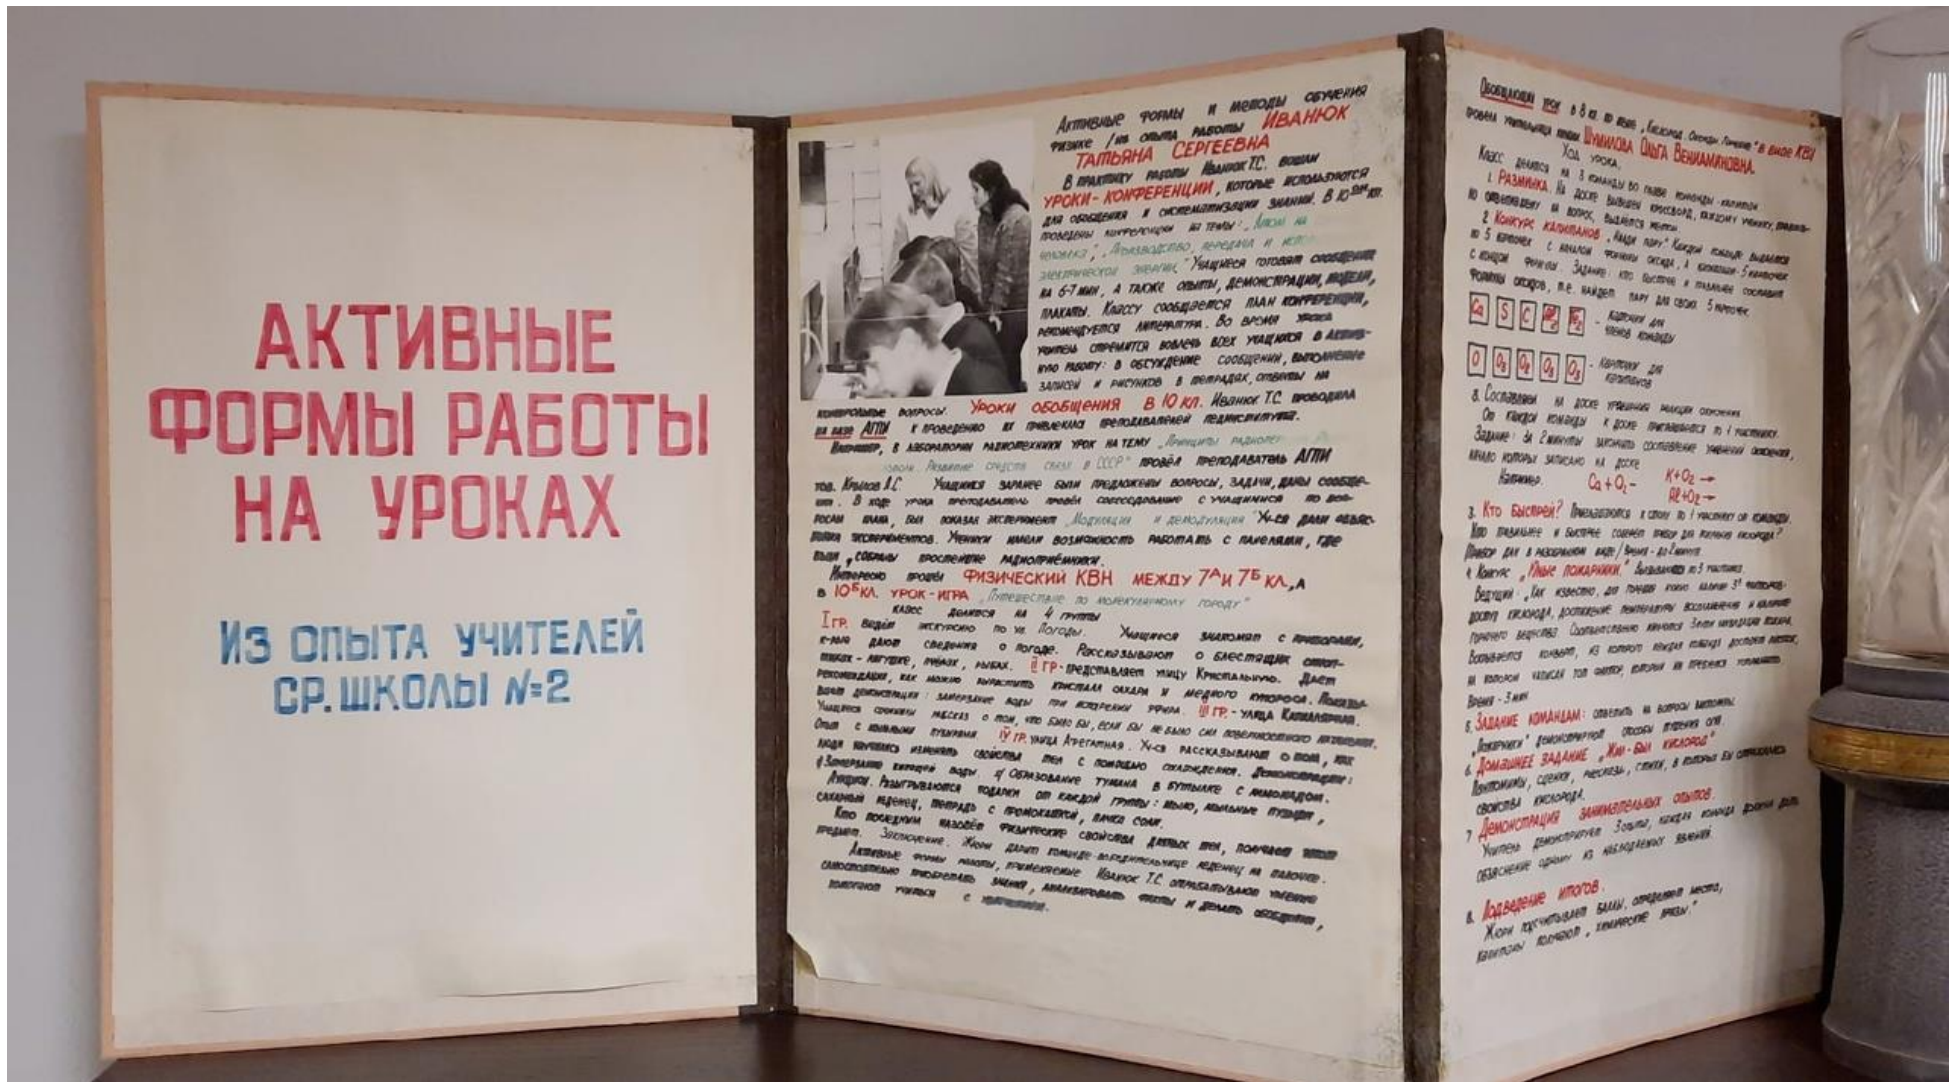 АКТИВНЫЕ
ФОРМЫ РАБОТЫ
НА УРОКАХ
ИЗ ОПЫТА УЧИТЕЛЕЙ
СР. ШКОЛЫ №2
АКТИВНЫЕ ФОРМЫ И МЕТОДЫ ОБУЧЕНИЯ
ФИЗИКЕ /ИЗ ОПЫТА РАБОТЫ ИВАНЮК
ТАТЬЯНА СЕРГЕЕВНА
В ПРАКТИКУ РАБОТЫ ИВАНЮК Т.С. ВОШЛИ
УРОКИ-КОНФЕРЕНЦИИ, КОТОРЫЕ ИСПОЛЬЗУЮТСЯ
ДЛЯ ОБОБЩЕНИЯ И СИСТЕМАТИЗАЦИИ ЗНАНИЙ. В 10 КЛ.
ПРОВЕДЕНЫ КОНФЕРЕНЦИИ НА ТЕМЫ: „АТОМ НА
ЧЕЛОВЕКА", „ПРОИЗВОДСТВО, ПЕРЕДАЧА И
ЭЛЕКТРИЧЕСКОЙ ЭНЕРГИИ." УЧАЩИЕСЯ ГОТОВЯТ СООБЩЕНИЯ
НА 6-7 МИН, А ТАКЖЕ ОПЫТЫ, ДЕМОНСТРАЦИИ, МОДЕЛИ,
ПЛАКАТЫ. КЛАССУ СООБЩАЕТСЯ ПЛАН КОНФЕРЕНЦИИ,
РЕКОМЕНДУЕТСЯ ЛИТЕРАТУРА. ВО ВРЕМЯ УРОКА
УЧИТЕЛЬ СТРЕМИТСЯ ВОВЛЕЧЬ ВСЕХ УЧАЩИХСЯ В АКТИВ-
НУЮ РАБОТУ: В ОБСУЖДЕНИЕ СООБЩЕНИЙ, ВЫПОЛНЕНИЕ
ЗАПИСЕЙ И РИСУНКОВ В ТЕТРАДЯХ, ОТВЕТЫ НА
КОНТРОЛЬНЫЕ ВОПРОСЫ. УРОКИ ОБОБЩЕНИЯ В 10 КЛ. ИВАНЮК Т.С. ПРОВОДИЛА
НА БАЗЕ АГПИ К ПРОВЕДЕНИЮ ИХ ПРИВЛЕКЛА ПРЕПОДАВАТЕЛЕЙ ПЕДИНСТИТУТА.
НАПРИМЕР, В ЛАБОРАТОРИИ РАДИОТЕХНИКИ УРОК НА ТЕМУ „ПРИНЦИПЫ
РАЗВИТИЕ СРЕДСТВ СВЯЗИ В СССР" ПРОВЁЛ ПРЕПОДАВАТЕЛЬ АГПИ
ТОВ. КРЫЛОВ А.С. УЧАЩИМСЯ ЗАРАНЕЕ БЫЛИ ПРЕДЛОЖЕНЫ ВОПРОСЫ, ЗАДАЧИ, ДАНЫ СООБЩЕ-
НИЯ. В ХОДЕ УРОКА ПРЕПОДАВАТЕЛЬ ПРОВЁЛ СОБЕСЕДОВАНИЕ С УЧАЩИМИСЯ ПО ВОП-
РОСАМ ПЛАНА, БЫЛ ПОКАЗАН ЭКСПЕРИМЕНТ „МОДУЛЯЦИЯ И ДЕМОДУЛЯЦИЯ" УЧ-СЯ ДАЛИ ОБЪЯС-
НЕНИЯ ЭКСПЕРИМЕНТОВ. УЧЕНИКИ ИМЕЛИ ВОЗМОЖНОСТЬ РАБОТАТЬ С ПАНЕЛЯМИ, ГДЕ
БЫЛИ СОБРАНЫ ПРОСТЕЙШИЕ РАДИОПРИЁМНИКИ.
ИНТЕРЕСНО ПРОШЁЛ ФИЗИЧЕСКИЙ КВН МЕЖДУ 7А И 7Б КЛ., А
В 10Б КЛ. УРОК-ИГРА „ПУТЕШЕСТВИЕ ПО МОЛЕКУЛЯРНОМУ ГОРОДУ"
КЛАСС ДЕЛИТСЯ НА 4 ГРУППЫ
I ГР. ВЕДЁТ ЭКСКУРСИЮ ПО УЛ. ПОГОДЫ. УЧАЩИЕСЯ ЗНАКОМЯТ С ПРИБОРАМИ,
К-РЫЕ ДАЮТ СВЕДЕНИЯ О ПОГОДЕ. РАССКАЗЫВАЮТ О БЛЕСТЯЩИХ
ЛЯГУШКЕ, ПЧЁЛАХ, РЫБАХ. II ГР-ПРЕДСТАВЛЯЕТ УЛИЦУ КРИСТАЛЬНУЮ. ДАЁТ
РЕКОМЕНДАЦИИ, КАК МОЖНО ВЫРАСТИТЬ КРИСТАЛЛ САХАРА И МЕДНОГО КУПОРОСА. ПОКАЗЫ-
ВАЕТ ДЕМОНСТРАЦИИ: ЗАМЕРЗАНИЕ ВОДЫ ПРИ ИСПАРЕНИИ ЭФИРА. III ГР.-УЛИЦА КАПИЛЛЯРНАЯ.
УЧАЩИЕСЯ СОЧИНИЛИ РАССКАЗ О ТОМ, ЧТО БЫЛО БЫ, ЕСЛИ БЫ НЕ БЫЛО СИЛ ПОВЕРХНОСТНОГО НАТЯЖЕНИЯ.
ОПЫТ С МЫЛЬНЫМИ ПУЗЫРЯМИ IV ГР. УЛИЦА АГРЕГАТНАЯ. УЧ-СЯ РАССКАЗЫВАЮТ О ТОМ, КАК
ЛЮДИ НАУЧИЛИСЬ ИЗМЕНЯТЬ СВОЙСТВА ТЕЛ С ПОМОЩЬЮ ОХЛАЖДЕНИЯ. ДЕМОНСТРАЦИИ:
ЗАМЕРЗАНИЕ КИПЯЩЕЙ ВОДЫ. ОБРАЗОВАНИЕ ТУМАНА В БУТЫЛКЕ С ЛИМОНАДОМ.
АУКЦИОН. РАЗЫГРЫВАЮТСЯ ПОДАРКИ ОТ КАЖДОЙ ГРУППЫ: МЫЛО, МЫЛЬНЫЕ ПУЗЫРИ,
САХАРНЫЙ ЛЕДЕНЕЦ, ТЕТРАДЬ С ПРОМОКАШКОЙ, ПАЧКА СОЛИ.
КТО ПОСЛЕДНИМ НАЗОВЁТ ФИЗИЧЕСКИЕ СВОЙСТВА ДАННЫХ ТЕЛ, ПОЛУЧАЕТ ЭТОТ
ПРЕДМЕТ. ЗАКЛЮЧЕНИЕ. ЖЮРИ ДАРИТ КОМАНДЕ-ПОБЕДИТЕЛЬНИЦЕ ЛЕДЕНЕЦ НА ПАЛОЧКЕ.
АКТИВНЫЕ ФОРМЫ РАБОТЫ, ПРИМЕНЯЕМЫЕ ИВАНЮК Т.С. ОТРАБАТЫВАЮТ УМЕНИЯ
САМОСТОЯТЕЛЬНО ПРИОБРЕТАТЬ ЗНАНИЯ, АНАЛИЗИРОВАТЬ ФАКТЫ И ДЕЛАТЬ ОБОБЩЕНИЯ,
ПОМОГАЮТ УЧИТЬСЯ С
ОБОБЩАЮЩИЙ УРОК В 8 КЛ. ПО ТЕМЕ „КИСЛОРОД. ОКСИДЫ. ГОРЕНИЕ" В ВИДЕ КВН
ПРОВЕЛА УЧИТЕЛЬНИЦА ХИМИИ ШУМИЛОВА ОЛЬГА ВЕНИАМИНОВНА.
ХОД УРОКА.
КЛАСС ДЕЛИТСЯ НА 3 КОМАНДЫ ВО ГЛАВЕ КОМАНДЫ-КАПИТАН.
1. РАЗМИНКА. НА ДОСКЕ ВЫВЕШЕН КРОССВОРД, КАЖДОМУ УЧЕНИКУ, ПРАВИЛЬ-
НО ОТВЕТИВШЕМУ НА ВОПРОС, ВЫДАЁТСЯ ЖЕТОН.
2. КОНКУРС КАПИТАНОВ „НАЙДИ ПАРУ" КАЖДОЙ КОМАНДЕ ВЫДАЁТСЯ
ПО 5 КАРТОЧЕК С НАЧАЛОМ ФОРМУЛЫ ОКСИДА, А КАПИТАНАМ-5 КАРТОЧЕК
С КОНЦОМ ФОРМУЛЫ. ЗАДАНИЕ: КТО БЫСТРЕЕ И ПРАВИЛЬНЕЕ СОСТАВИТ
ФОРМУЛЫ ОКСИДОВ, Т.Е. НАЙДЕТ ПАРУ ДЛЯ СВОИХ 5 КАРТОЧЕК
Ca S C Fe2 - КАРТОЧКИ ДЛЯ
ЧЛЕНОВ КОМАНДЫ
O O3 O2 O3 O3 - КАРТОЧКИ ДЛЯ
КАПИТАНОВ
3. СОСТАВЛЯЕМ НА ДОСКЕ УРАВНЕНИЯ РЕАКЦИИ ОКИСЛЕНИЯ
ОТ КАЖДОЙ КОМАНДЫ К ДОСКЕ ПРИГЛАШАЕТСЯ ПО 1 УЧАСТНИКУ.
ЗАДАНИЕ: ЗА 2 МИНУТЫ ЗАКОНЧИТЬ СОСТАВЛЕНИЕ УРАВНЕНИЙ ОКИСЛЕНИЯ,
НАЧАЛО КОТОРЫХ ЗАПИСАНО НА ДОСКЕ
НАПРИМЕР. Ca + O2 - K + O2 →
Al + O2 →
3. КТО БЫСТРЕЙ? ПРИГЛАШАЮТСЯ К СТОЛУ ПО 1 УЧАСТНИКУ ОТ КОМАНДЫ.
КТО ПРАВИЛЬНЕЕ И БЫСТРЕЕ СОБЕРЁТ ПРИБОР ДЛЯ ПОЛУЧЕНИЯ КИСЛОРОДА?
ПРИБОР ДАН В РАЗОБРАННОМ ВИДЕ /ВРЕМЯ-ДО 2 МИНУТ
4. КОНКУРС „ЮНЫЕ ПОЖАРНИКИ." ВЫЗЫВАЮТСЯ ПО 3 УЧАСТНИКА.
ВЕДУЩИЙ: „КАК ИЗВЕСТНО, ДЛЯ ГОРЕНИЯ НУЖНО НАЛИЧИЕ 3Х ФАКТОРОВ-
ДОСТУП КИСЛОРОДА, ДОСТИЖЕНИЕ ТЕМПЕРАТУРЫ ВОСПЛАМЕНЕНИЯ И НАЛИЧИЕ
ГОРЮЧЕГО ВЕЩЕСТВА. СООТВЕТСТВЕННО ИМЕЮТСЯ 3 ПУТИ ЛИКВИДАЦИИ ПОЖАРА.
ВСКРЫВАЕТСЯ КОНВЕРТ, ИЗ КОТОРОГО КАЖДАЯ КОМАНДА ДОСТАЁТ ЛИСТОК,
НА КОТОРОМ ЗАПИСАН ТОТ ФАКТОР, КОТОРЫЙ ИМ ТРЕБУЕТСЯ УСТРАНИТЬ.
ВРЕМЯ-3 МИН
5. ЗАДАНИЕ КОМАНДАМ: ОТВЕТИТЬ НА ВОПРОСЫ ВИКТОРИНЫ.
„ПОЖАРНИКИ" ДЕМОНСТРИРУЮТ СПОСОБЫ ТУШЕНИЯ ОГНЯ.
6. ДОМАШНЕЕ ЗАДАНИЕ „ЖИЛ-БЫЛ КИСЛОРОД"
ПАНТОМИМЫ, СЦЕНКИ, РАССКАЗЫ, СТИХИ, В КОТОРЫХ БЫ ОТРАЖАЛИСЬ
СВОЙСТВА КИСЛОРОДА.
7 ДЕМОНСТРАЦИЯ ЗАНИМАТЕЛЬНЫХ ОПЫТОВ.
УЧИТЕЛЬ ДЕМОНСТРИРУЕТ 3 ОПЫТА, КАЖДАЯ КОМАНДА ДОЛЖНА ДАТЬ
ОБЪЯСНЕНИЕ ОДНОМУ ИЗ НАБЛЮДАЕМЫХ ЯВЛЕНИЙ.
8. ПОДВЕДЕНИЕ ИТОГОВ.
ЖЮРИ ПОДСЧИТЫВАЕТ БАЛЛЫ, ОПРЕДЕЛЯЕТ МЕСТА,
КАПИТАНЫ ПОЛУЧАЮТ „ХИМИЧЕСКИЕ ПРИЗЫ."